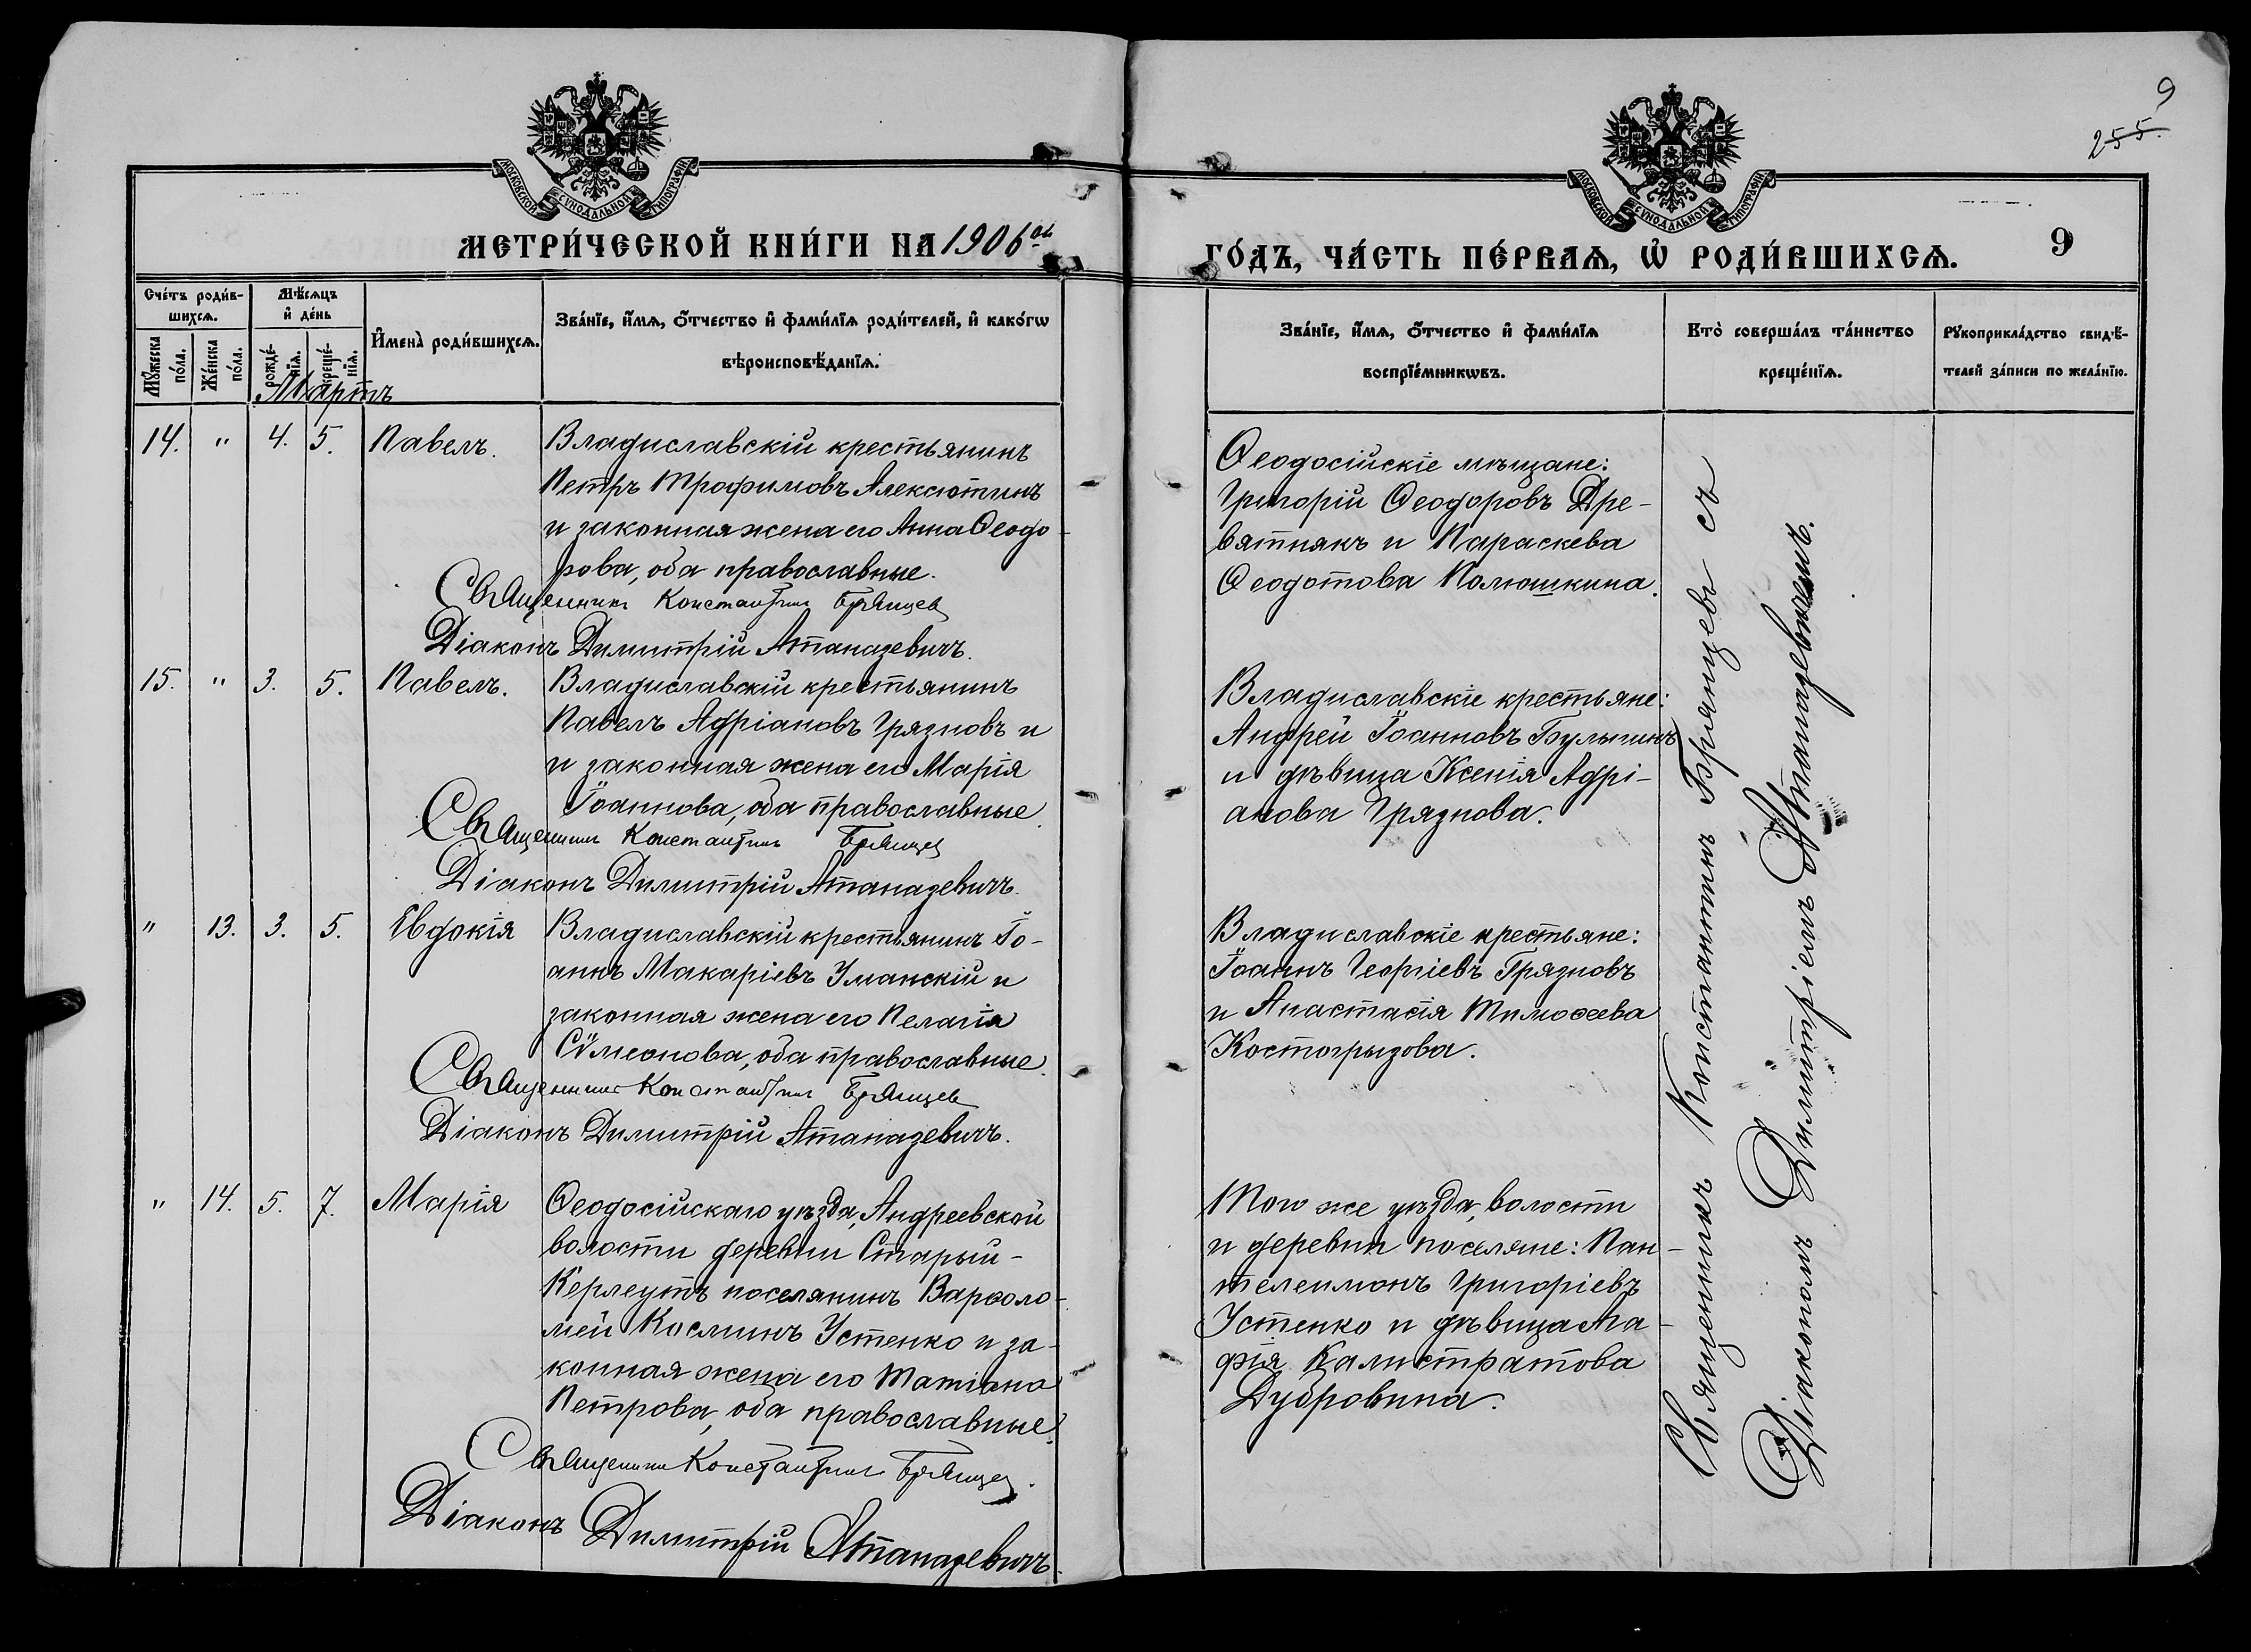 9
255.
МОСКОВСКОЙ СУНОДАЛЬНОЙ ТИПОГРАФІИ
МОСКОВСКОЙ СУНОДАЛЬНОЙ ТИПОГРАФІИ
МЕТРИ́ЧЕСКОЙ КНИ́ГИ НА 1906ой
ГО́ДЪ, ЧА́СТЬ ПЕ́РВАѦ, Ѽ РОДИ́ВШИХСѦ.
9
Сче́тъ роди́в-
шихсѧ.
Мѣ́сѧцъ
и҆ де́нь
Мꙋ́жеска по́ла.
Же́нска по́ла.
рожде́-нїѧ.
креще́-нїѧ.
И҆мена̀ роди́вшихсѧ.
Зва́нїе, и҆́мѧ, ѻ҆́тчество и҆ фами́лїѧ роди́телей, и҆ како́гѡ
вѣроисповѣ́данїѧ.
Зва́нїе, и҆́мѧ, ѻ҆́тчество и҆ фами́лїѧ
воспрїе́мникѡвъ.
Кто̀ соверша́лъ та́инство
креще́нїѧ.
Рꙋкоприкла́дство свидѣ́-
телей за́писи по жела́нїю.
Мартъ
14. " 4. 5. Павелъ.
Владиславскій крестьянинъ
Петръ Трофимовъ Алексютинъ
и законная жена его Анна Ѳеодо-
рова, оба православные.
Священникъ Константинъ Брянцев
Діаконъ Димитрій Атаназевичъ.
Ѳеодосійскіе мѣщане:
Григорій Ѳеодоровъ Дре-
вятнякъ и Параскева
Ѳеодотова Полюшкина.
15. " 3. 5. Павелъ.
Владиславскій крестьянинъ
Павелъ Адріановъ Грязновъ и
и законная жена его Марія
Іоаннова, оба православные.
Священникъ Константинъ Брянцев
Діаконъ Димитрій Атаназевичъ.
Владиславскіе крестьяне:
Андрей Іоанновъ Булыгинъ
и дѣвица Ксенія Адрі-
анова Грязнова.
" 13. 3. 5. Евдокія
Владиславскій крестьянинъ Іо-
аннъ Макаріевъ Уманскій и
законная жена его Пелагія
Сѵмеонова, оба православные.
Священникъ Константинъ Брянцев
Діаконъ Димитрій Атаназевичъ.
Владиславскіе крестьяне:
Іоаннъ Георгіевъ Грязновъ
и Анастасія Тимоѳеева
Костогрызова.
" 14. 5. 7. Марія
Ѳеодосійскаго уѣзда, Андреевской
волости деревни Старый-
Керлеутъ поселянинъ Варѳоло-
мей Косминъ Устенко и за-
конная жена его Татіана
Петрова, оба православные.
Священникъ Константинъ Брянцев.
Діаконъ Димитрій Атаназевичъ.
Того же уѣзда, волости
и деревни поселяне: Пан-
телеимонъ Григоріевъ
Устенко и дѣвица Ма-
рія Калистратова
Дубровина.
Священникъ Константинъ Брянцевъ съ
Діакономъ Димитріемъ Атаназевичемъ.